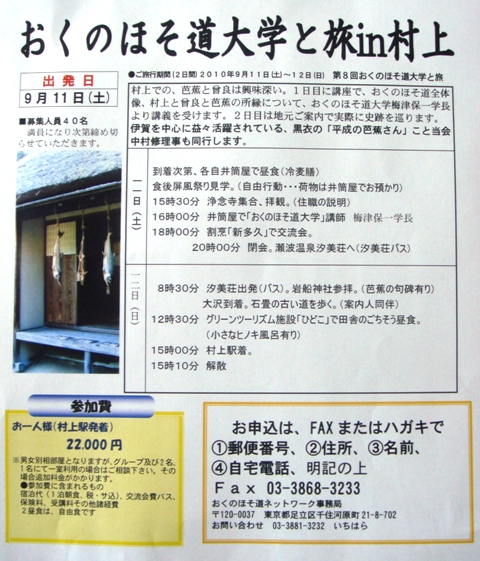 おくのほそ道大学と旅in村上
出発日
9月11日(土)
●ご旅行期間(2日間)2010年9月11日(土)～12日(日) 第8回おくのほそ道大学と旅
■募集人員40名
満員になり次第締め切
らせていただきます。
村上での、芭蕉と曾良は興味深い。1日目に講座で、おくのほそ道全体
像、村上と曾良と芭蕉の所縁について、おくのほそ道大学梅津保一学長
より講義を受けます。2日目は地元ご案内で実際に史跡を巡ります。
伊賀を中心に益々活躍されている、黒衣の「平成の芭蕉さん」こと当会
中村修理事も同行します。
一一日(土)
到着次第、各自井筒屋で昼食(冷麦膳)
食後屏風祭り見学。(自由行動・・・荷物は井筒屋でお預かり)
15時30分 浄念寺集合、拝観。(住職の説明)
16時00分 井筒屋で「おくのほそ道大学」講師 梅津保一学長
18時00分 割烹「新多久」で交流会。
20時00分 閉会。瀬波温泉汐美荘へ(汐美荘バス)
一二日(日)
8時30分 汐美荘出発(バス)。岩船神社参拝。(芭蕉の句碑有り)
大沢到着。石畳の古い道を歩く。(案内人同伴)
12時30分 グリーンツーリズム施設「ひどこ」で田舎のごちそう昼食。
(小さなヒノキ風呂有り)
15時00分 村上駅着。
15時10分 解散
参加費
お一人様(村上駅発着)
22,000円
※男女別相部屋となりますが、グループ及び2名、
1名にて一室利用の場合はご相談下さい。その
場合追加料金がかかります。
●参加費に含まれるもの
宿泊代(1泊朝食、税・サ込)、交流会費バス、
保険料、受講料その他諸経費
2昼食は、自由食です
お申込は、FAXまたはハガキで
①郵便番号、②住所、③名前、
④自宅電話、明記の上
Fax 03-3868-3233
おくのほそ道ネットワーク事務局
〒120-0037 東京都足立区千住河原町21-8-702
お問い合わせ 03-3881-3232 いちはら